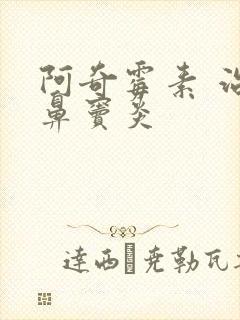 阿奇霉素 治
鼻窦炎
達西 尭勒瓦